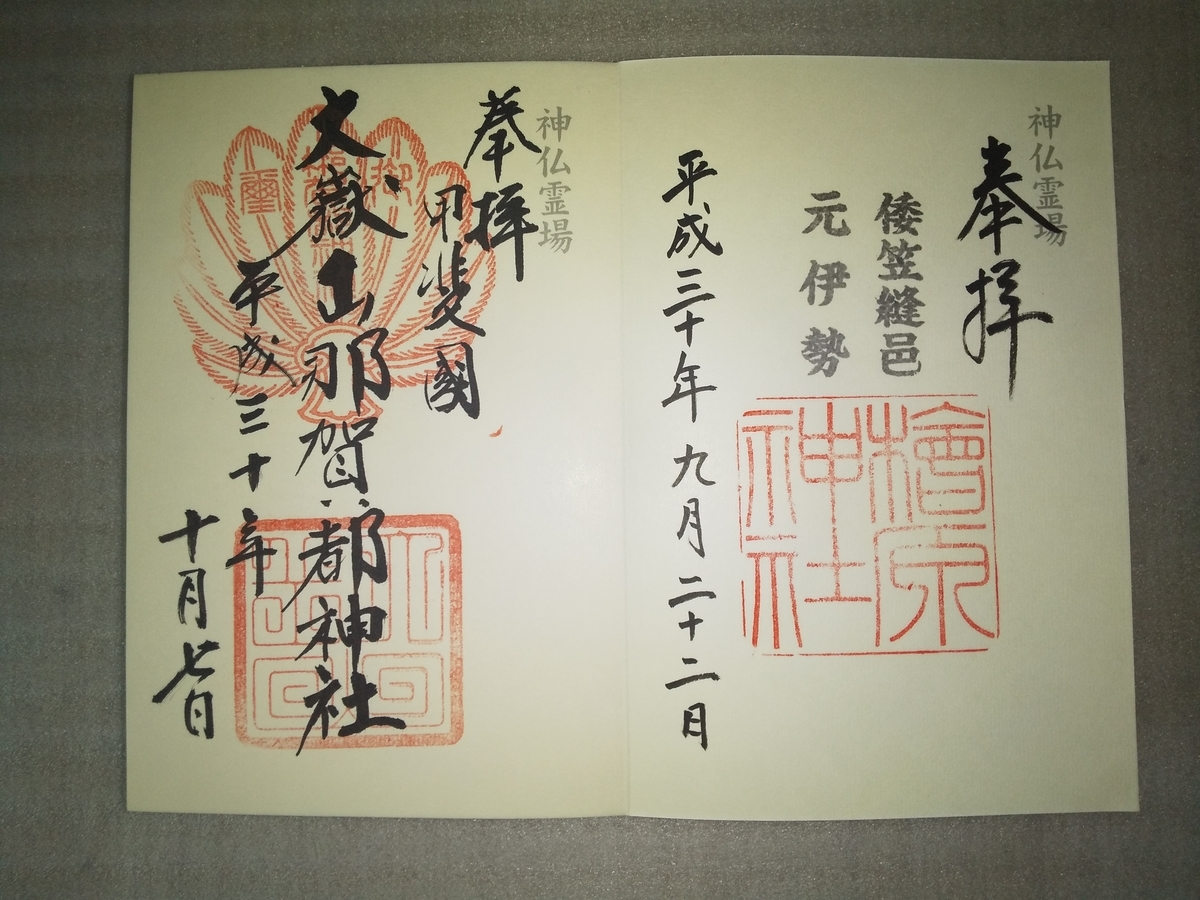 神仏霊場
奉拝
倭笠縫邑
元伊勢
檜原
神社
平成三十年九月二十二日
神仏霊場
奉拝
甲斐國
大嶽山那賀都神社
平成三十年
十月七日